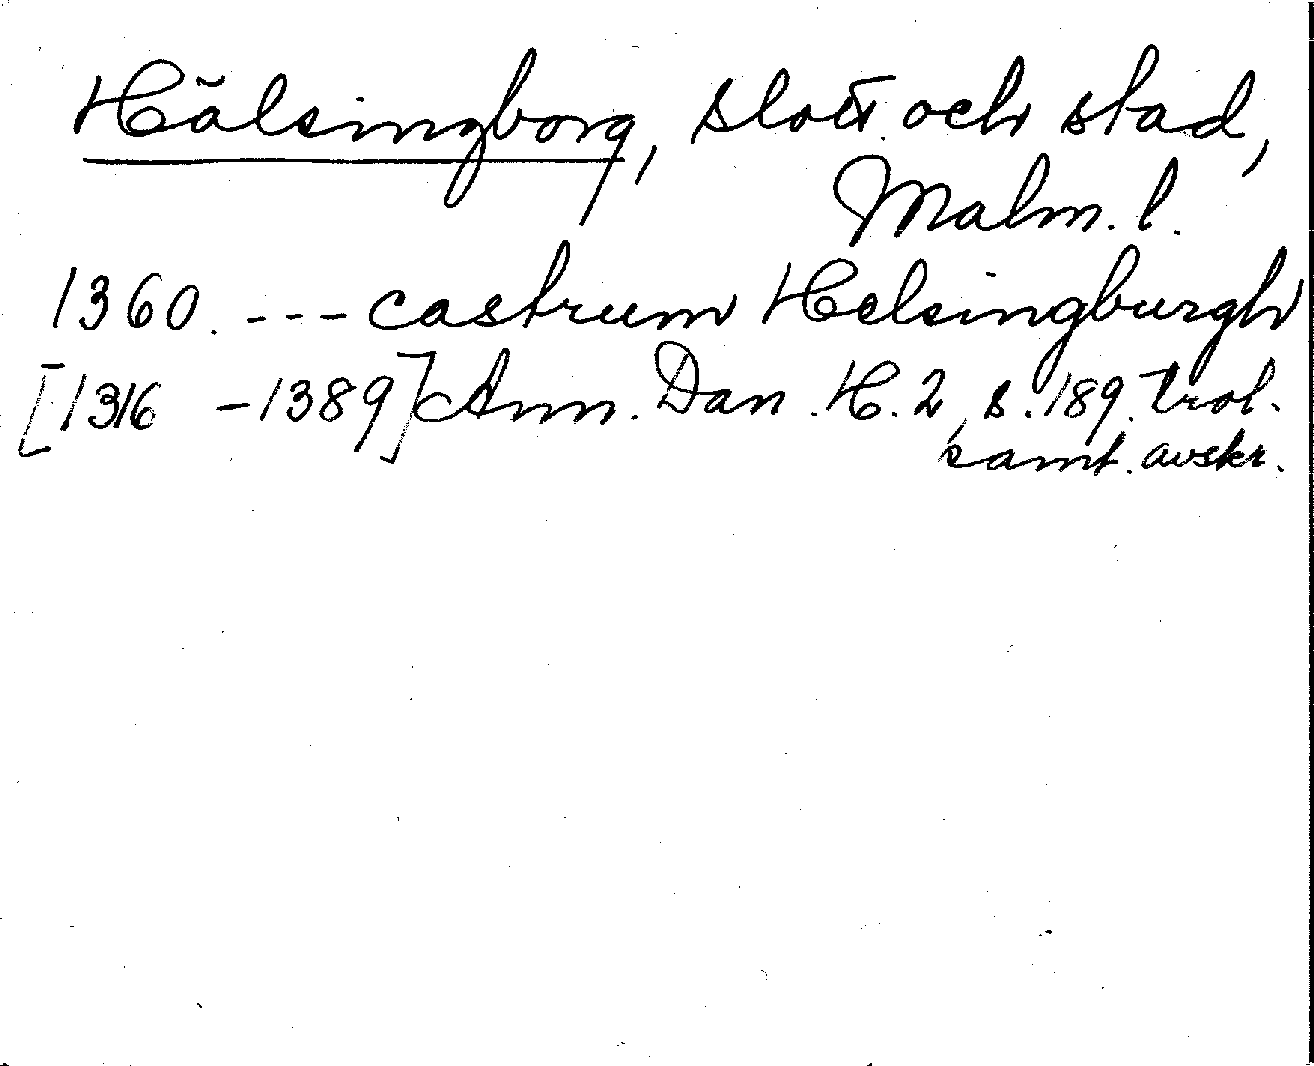 Hälsingborg, slott och stad,
Malm. l.
1360. --- castrum Helsingburgh
[1316 - 1389] Ann. Dan. H. 2, s. 189. trol.
samt. avskr.